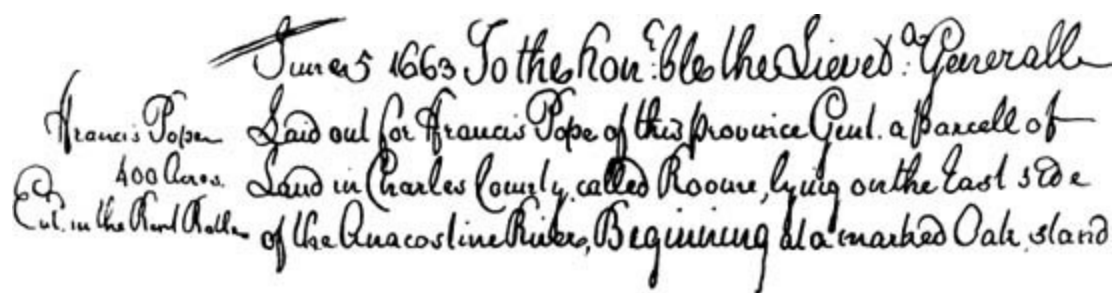 June 5 1663 To the hon:ble the Lievet: Generall
Francis Pope
400 Acres.
Ent. in the Rent Rolle
Laid out for Francis Pope of this province Gent. a parcell of
Land in Charles County, called Roome, lying on the East side
of the Anacostine River, Beginning at a marked Oak, stand